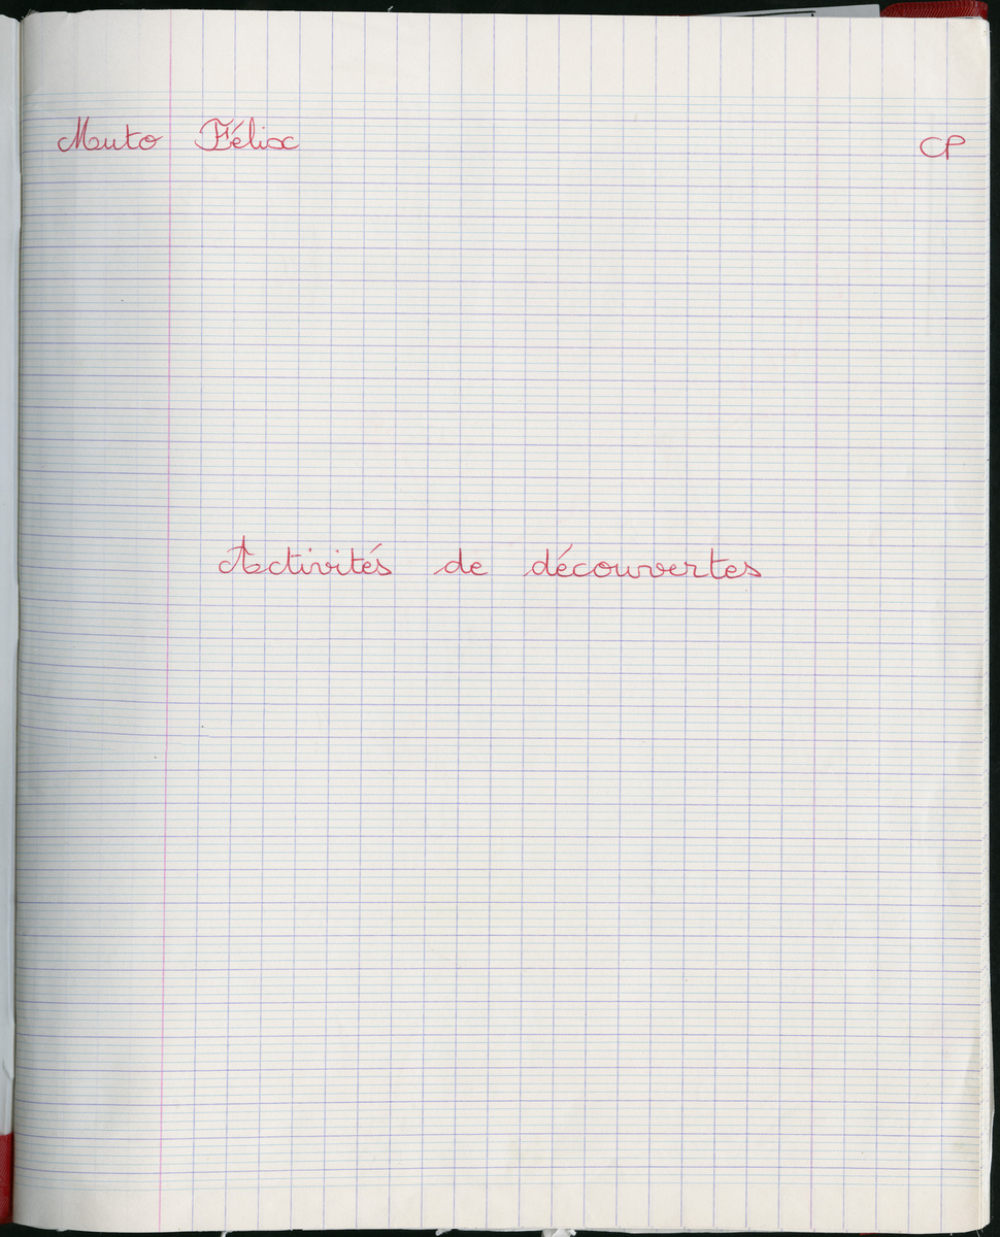 Muto Félix CP
Activités de découvertes